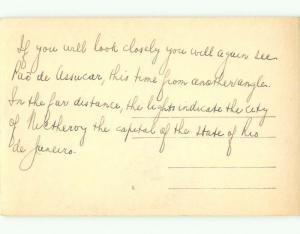 If you will look closely you will again see
Pao de Assucar, this time from another angle.
In the far distance, the lights indicate the city
of Nictheroy the capital of the State of Rio
de Janeiro.